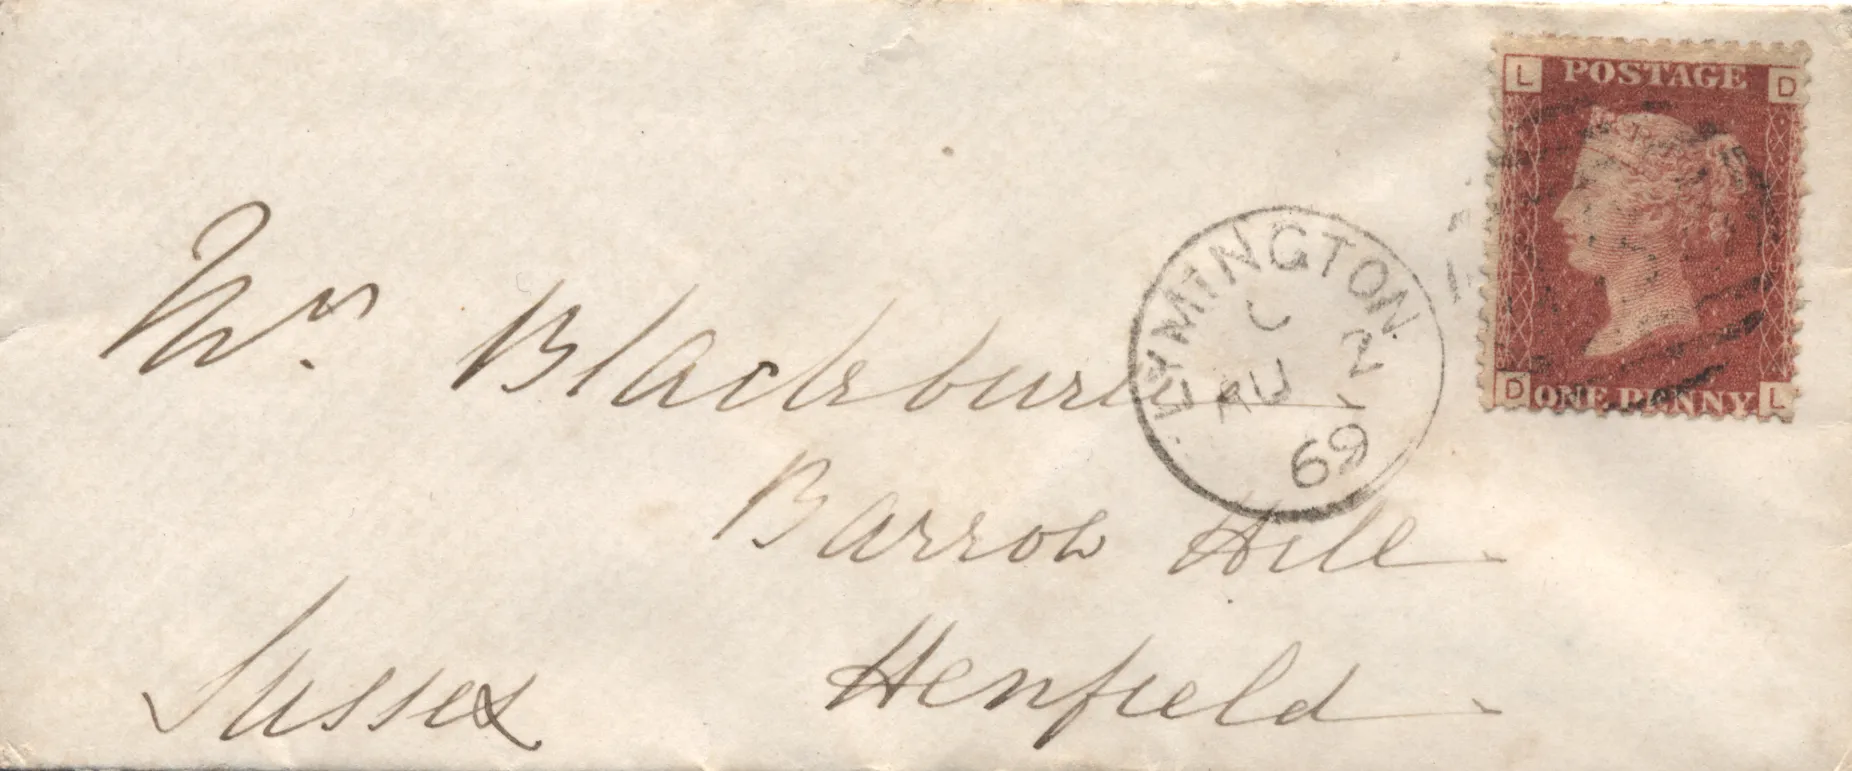 L POSTAGE D
D ONE PENNY L
LYMINGTON
C
AU 2
69
Mrs. Blackburn
Barrow Hill
Henfield
Sussex